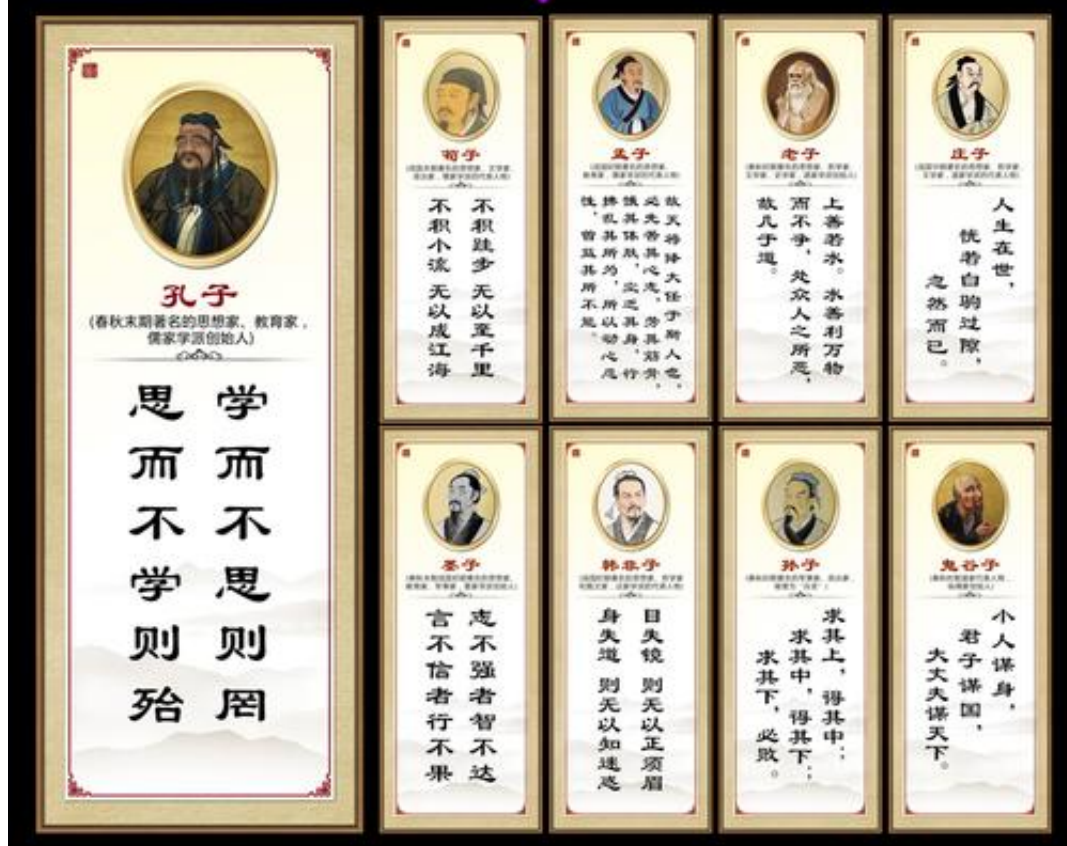 孔子
(春秋末期著名的思想家、教育家，
儒家学派创始人)
学而不思则罔
思而不学则殆
荀子
不积跬步 无以至千里
不积小流 无以成江海
孟子
故天将降大任于斯人也，
必先苦其心志，劳其筋骨，
饿其体肤，空乏其身，行
拂乱其所为，所以动心忍
性，曾益其所不能。
老子
上善若水。水善利万物
而不争，处众人之所恶，
故几于道。
庄子
人生在世，
恍若白驹过隙，
忽然而已。
墨子
志不强者智不达
言不信者行不果
韩非子
目失镜 则无以正须眉
身失道 则无以知迷惑
孙子
求其上，得其中；
求其中，得其下；
求其下，必败。
鬼谷子
小人谋身，
君子谋国，
大丈夫谋天下。